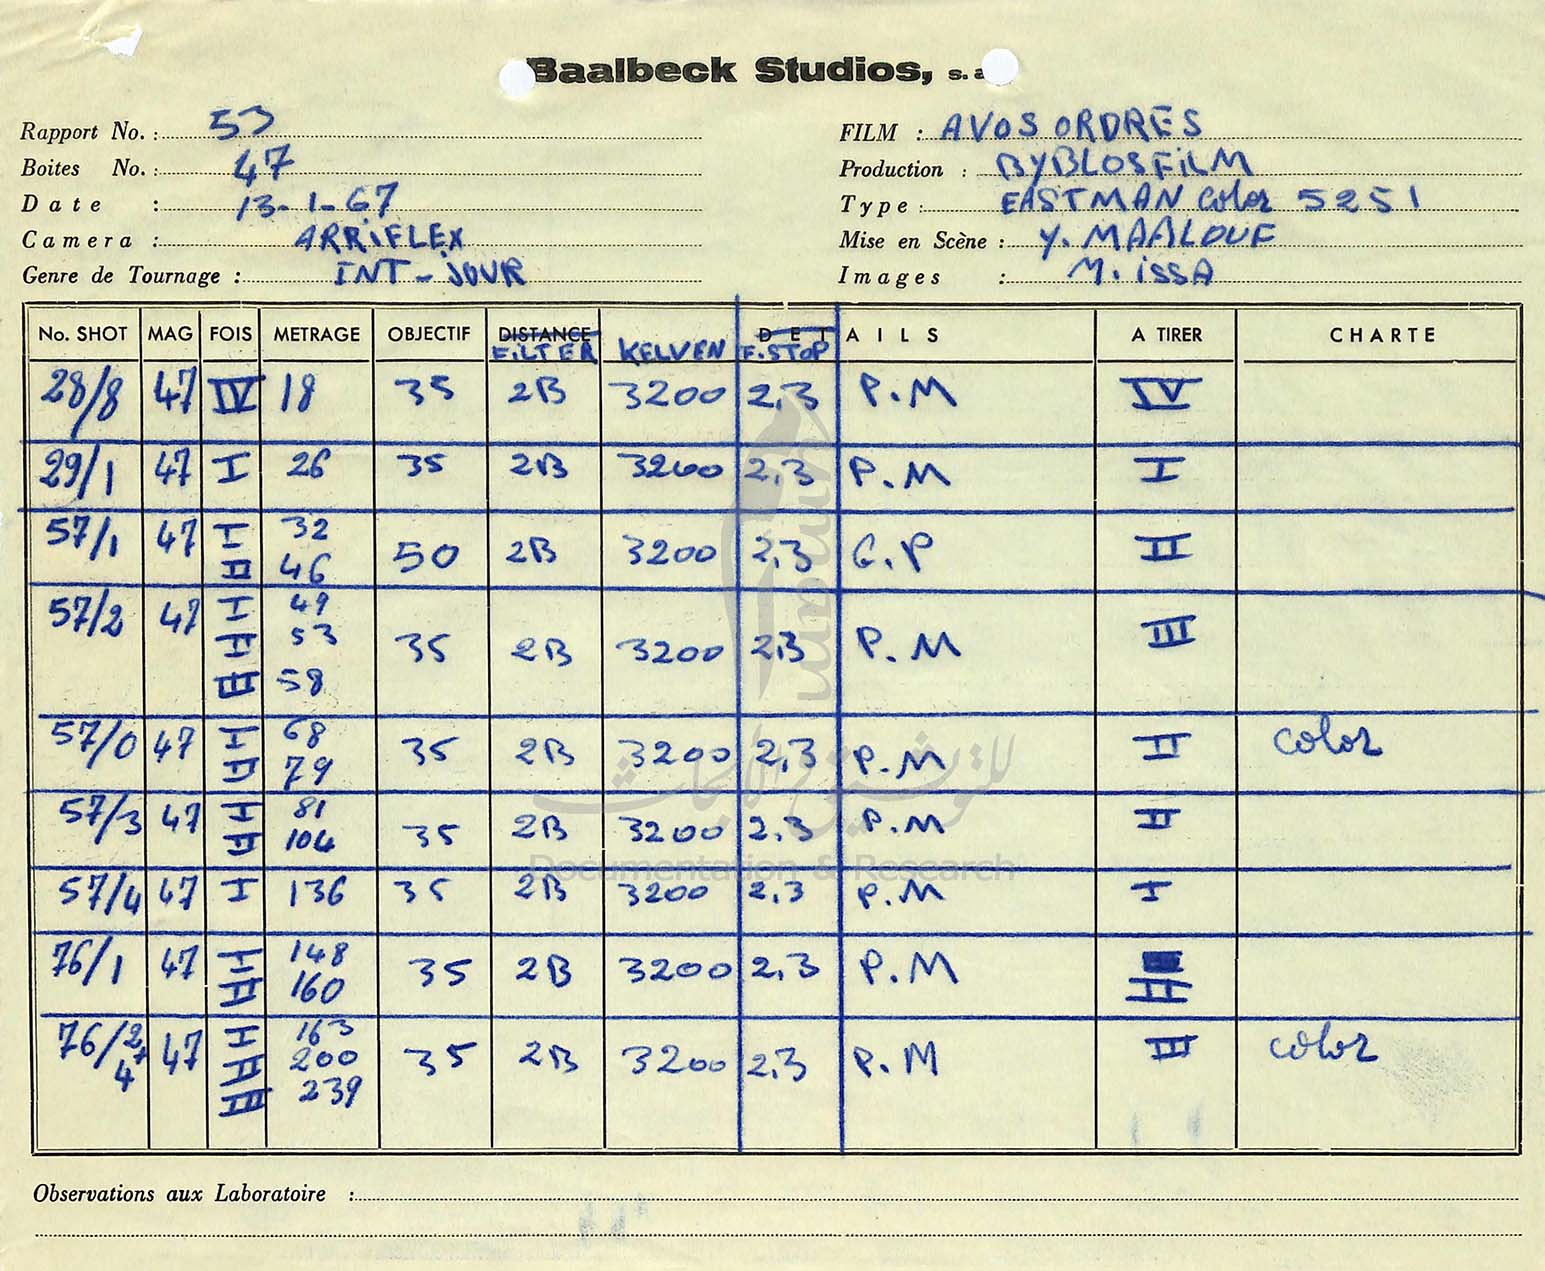 Baalbeck Studios, s. a
Rapport No. : 53
Boites No. : 47
Date : 13-1-67
Camera : ARRIFLEX
Genre de Tournage : INT-JOUR
FILM : AVOS ORDRES
Production : BYBLOSFILM
Type : EASTMAN Color 5251
Mise en Scène : Y. MAALOUF
Images : M. ISSA
No. SHOT MAG FOIS METRAGE OBJECTIF DISTANCE DETAILS A TIRER CHARTE
FILTER KELVEN F.STOP
28/8 47 IV 18 35 2B 3200 2,3 P.M IV
29/1 47 I 26 35 2B 3200 2,3 P.M I
57/1 47 I 32 50 2B 3200 2,3 G.P II
II 46
57/2 47 I 49 35 2B 3200 2,3 P.M III
II 53
III 58
57/0 47 I 68 35 2B 3200 2,3 P.M II color
II 79
57/3 47 I 81 35 2B 3200 2,3 P.M II
II 104
57/4 47 I 136 35 2B 3200 2,3 P.M I
76/1 47 I 148 35 2B 3200 2,3 P.M II
II 160
76/2+4 47 I 163 35 2B 3200 2,3 P.M III color
II 200
III 239
Observations aux Laboratoire :
umam
للتوثيق والأبحاث
Documentation & Research